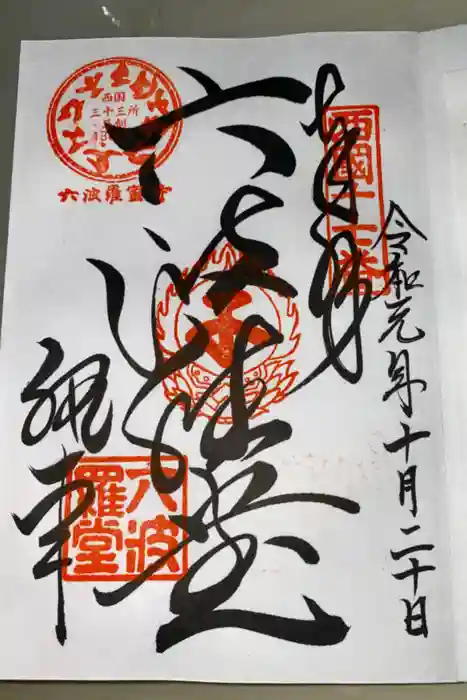 奉拝
西國十七番
令和元年十月二十日
六波羅堂
執事
六波
羅堂
西国
三十三所
六波羅蜜寺